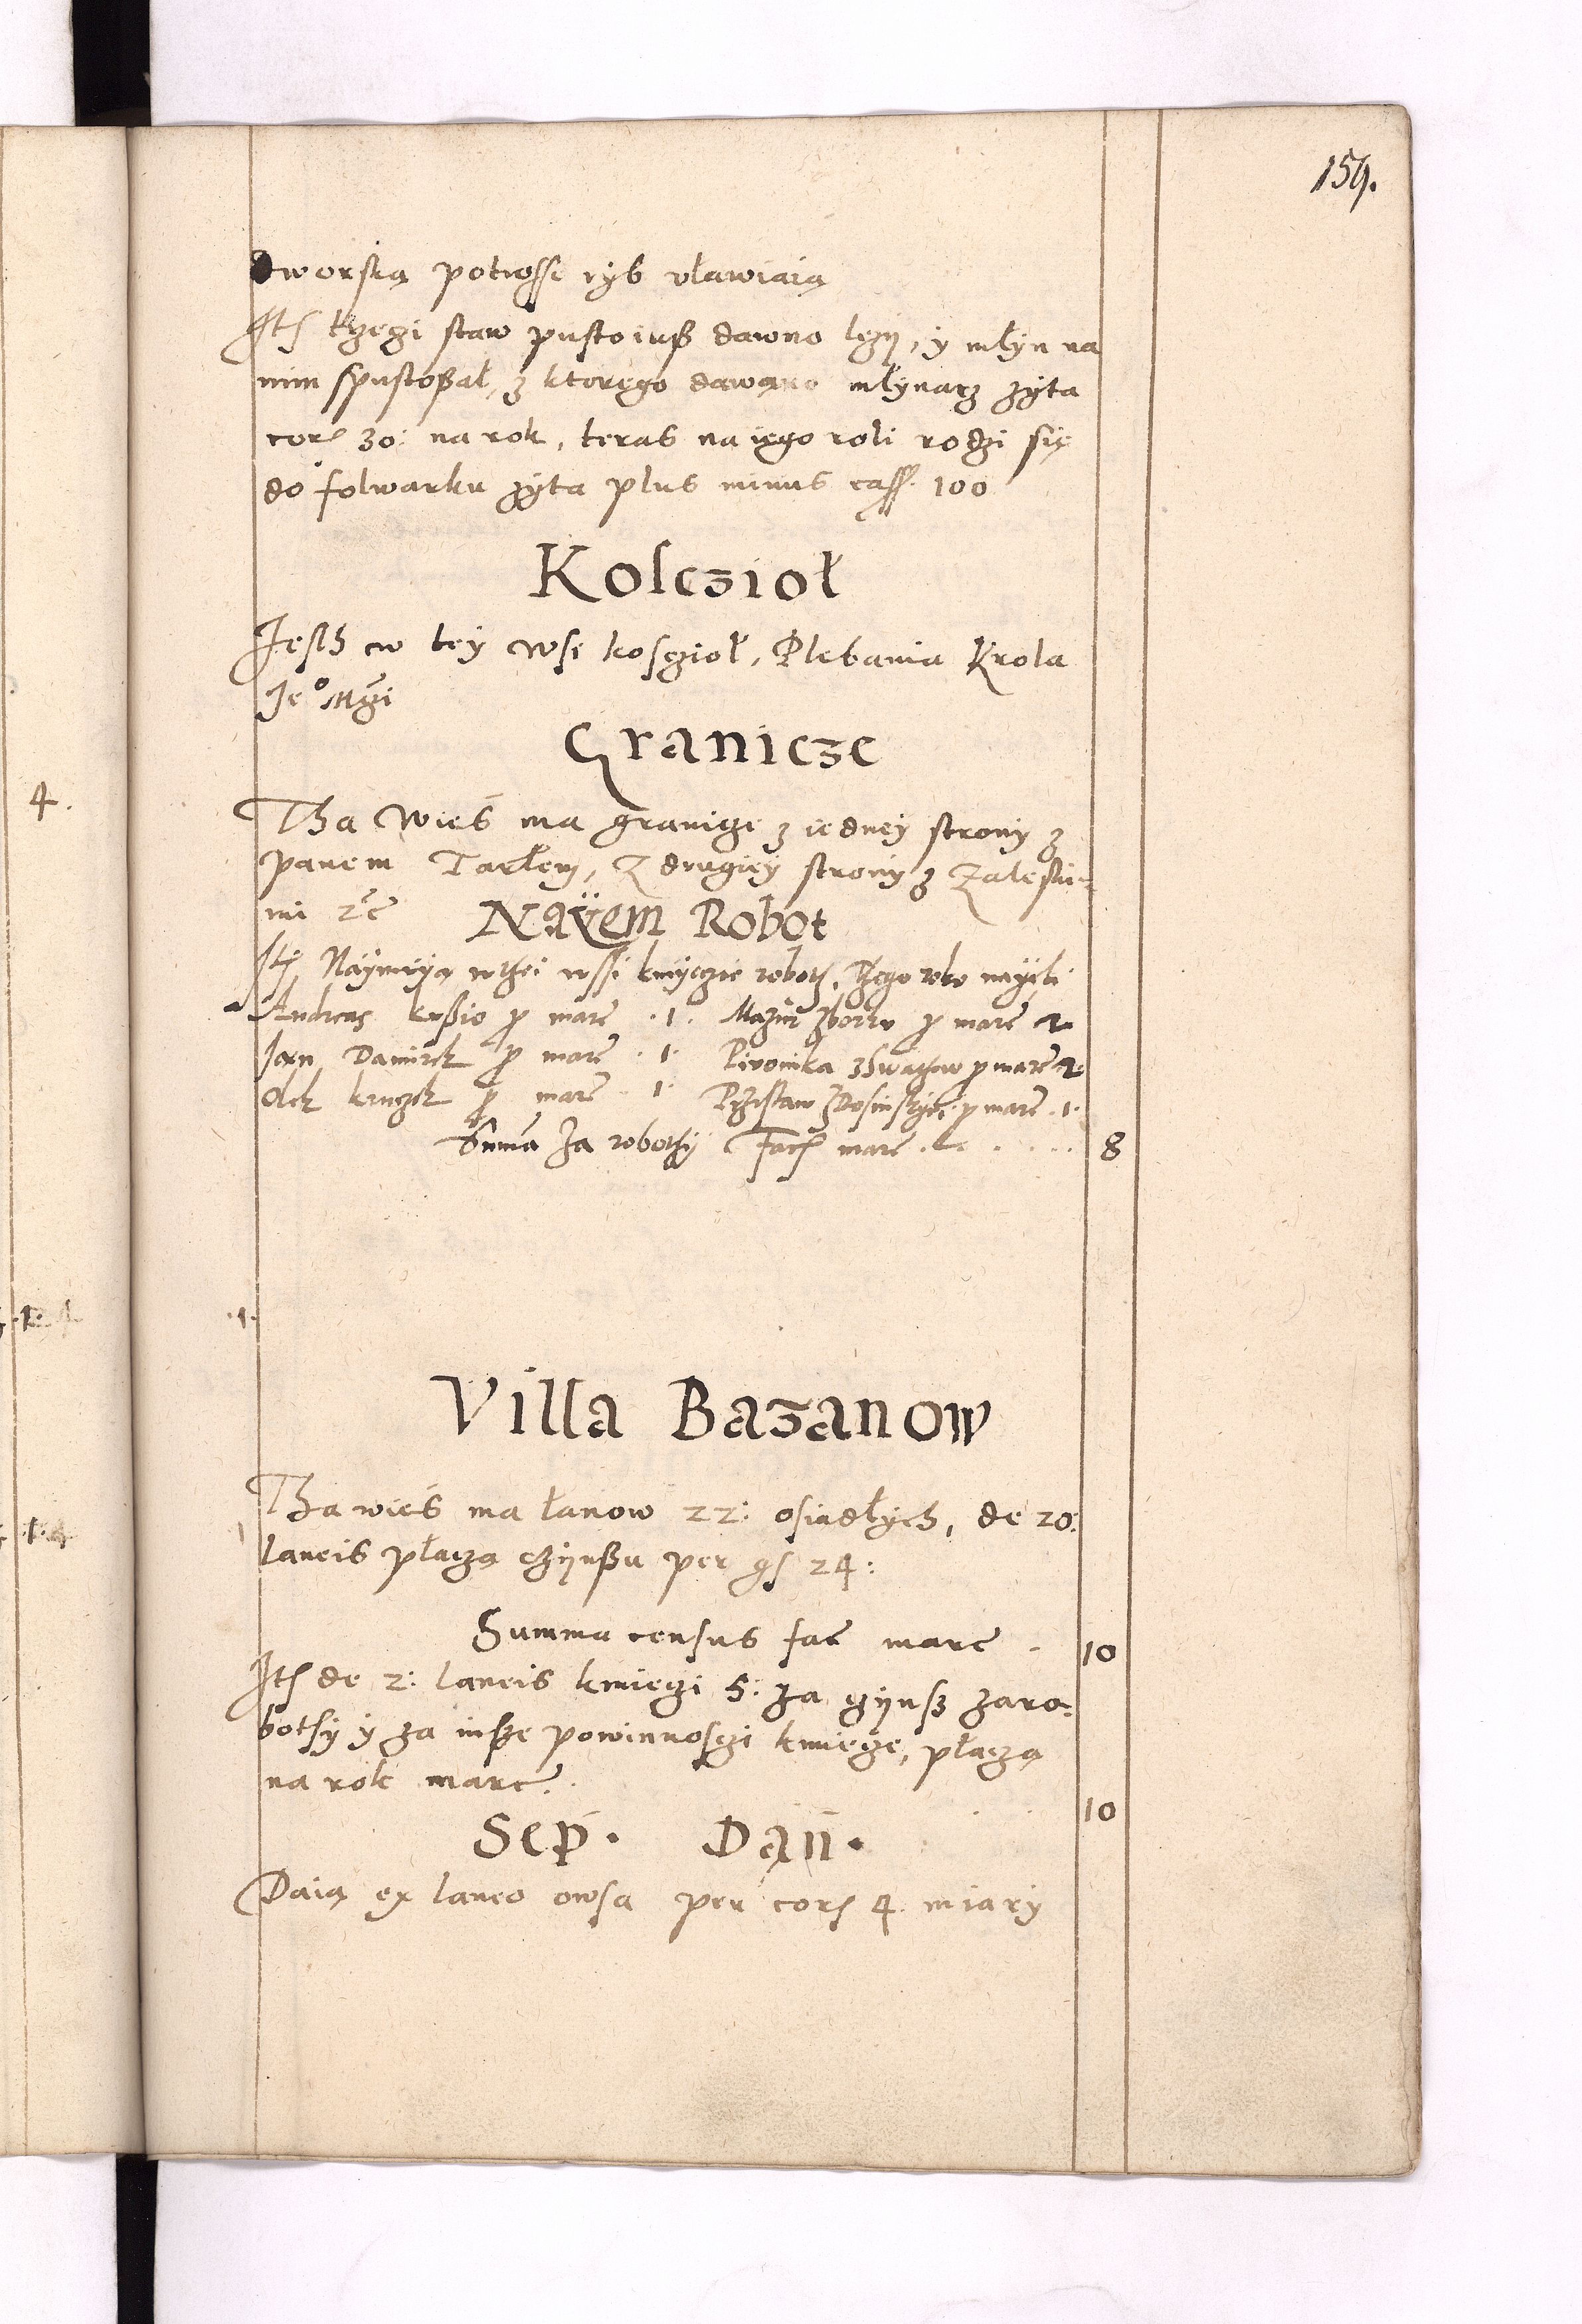 159.
dworską potrosse ryb vławiaią
Ite(m) trzeczi staw pusto iusz dawno leży, y młyn na
nim spustoszał, z ktorego dawano młynarz żyta
cor 30: na rok, teras na iego roli rodzi się
do folwarku żyta plus minus cass. 100
Kosczioł
Jesth w tey wsi kosczioł, Plebania Krola
Je° Mczi
Granicze
Tha Wies ma granicze z iedney strony z
panem Tarłem, Z drugiey strony z Zaleski=
mi 2c
Nayem Robot
Andreas kussio p marc .1. Mazur p marc 2
Jan Danirek p marc .1. Pivonika p marc 2
Olek kruczek p marc 1 p marc .1.
Suma Za robothy Fac marc . . . . . 8
4.
.1.
Villa Bazanow
Tha wies ma łanow 22: osiadłych, de 20:
laneis płaczą czynszu per gs 24:
Summa census fac marc . 10
Ite(m) de 2: laneis kmieczi 5: za czynsz za ro=
bothy y za insze powinnosczi kmiecze, płaczą
na rok marc. 10
Sep. Dan.
Daią ex laneo owsa per cor 4 miary